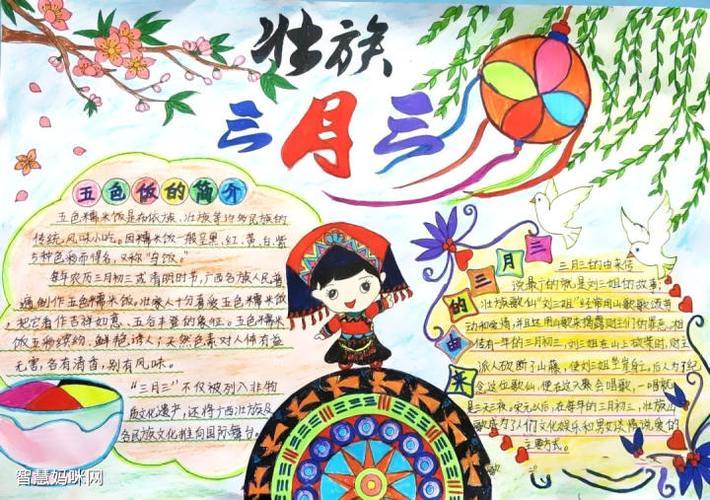 壮族
三月三
五色饭的简介
五色糯米饭是布依族、壮族等许多民族的
传统风味小吃。因糯米饭一般呈黑、红、黄、白、紫
5种色彩而得名，又称“乌饭”。
每年农历三月初三或清明时节，广西各族人民普
遍制作五色糯米饭。壮家人十分喜爱五色糯米饭
，把它看作吉祥如意、五谷丰登的象征。五色糯米
饭五彩缤纷，鲜艳诱人；天然色素对人体有益
无害，各有清香，别有风味。
“三月三”不仅被列入非物
质文化遗产，还将广西壮族及
各民族文化推向国际舞台。
三月三的由来
三月三的由来传
说最广的就是刘三姐的故事：
壮族歌仙“刘三姐”经常用山歌歌颂劳
动和爱情，并且还用山歌来揭露财主们的罪恶，相
传有一年的三月初三，刘三姐在山上砍柴时，财主
派人砍断了山藤，使刘三姐坠崖身亡，后人为了纪
念这位歌仙，便在这天聚会唱歌，一唱就
是三天三夜。宋元以后，在每年的三月初三，壮族山
歌成为了人们文化娱乐和男女谈情说爱的
主要方式。
智慧妈咪网